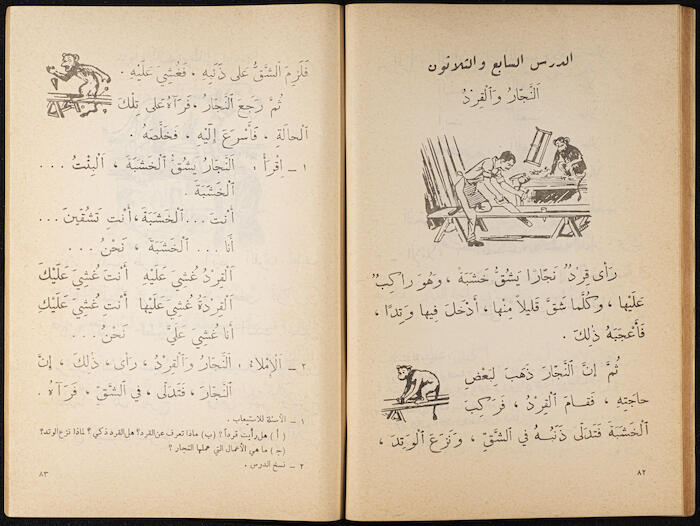 الدرس السابع والثلاثون
اَلنَّجَّارُ وَاَلْقِرْدُ
رَأَى قِرْدٌ نَجَّارًا يَشُقُّ خَشَبَةً ، وَهُوَ رَاكِبٌ
عَلَيْهَا ، وَكُلَّمَا شَقَّ قَلِيلاً مِنْهَا ، أَدْخَلَ فِيهَا وَتِدًا ،
فَأَعْجَبَهُ ذٰلِكَ .
ثُمَّ إِنَّ اَلنَّجَّارَ ذَهَبَ لِبَعْضِ
حَاجَتِهِ ، فَقَامَ اَلْقِرْدُ ، فَرَكِبَ
اَلْخَشَبَةَ فَتَدَلَّى ذَنَبُهُ فِي اَلشَّقِّ ، وَنَزَعَ اَلْوَتِدَ ،
٨٢
فَلَزِمَ اَلشَّقُّ عَلَى ذَنَبِهِ . فَغُشِيَ عَلَيْهِ .
ثُمَّ رَجَعَ اَلنَّجَّارُ ، فَرَآهُ عَلَى تِلْكَ
اَلْحَالَةِ . فَأَسْرَعَ إِلَيْهِ ، فَخَلَّصَهُ .
١ – اِقْرَأْ : اَلنَّجَّارُ يَشُقُّ اَلْخَشَبَةَ ، اَلْبِنْتُ ...
اَلْخَشَبَةَ .
أَنْتَ ... اَلْخَشَبَةَ ، أَنْتِ تَشُقِّينَ ...
أَنَا ... اَلْخَشَبَةَ ، نَحْنُ ...
اَلْقِرْدُ غُشِيَ عَلَيْهِ أَنْتَ غُشِيَ عَلَيْكَ
اَلْقِرْدَةُ غُشِيَ عَلَيْها أَنْتِ غُشِيَ عَلَيْكِ
أَنَا غُشِيَ عَلَيَّ نَحْنُ ...
٢ – اَلْإِمْلَاءُ : اَلنَّجَّارُ وَاَلْقِرْدُ ، رَأَى ، ذٰلِكَ ، إِنَّ
اَلنَّجَّارَ ، فَتَدَلَّى ، فِي اَلشَّقِّ ، فَرَآهُ .
١ – الأسئلة للاستيعاب .
( أ ) هل رأيت قرداً ؟ (ب) ماذا تعرف عن القرد؟ هل القرد ذكي ؟ لماذا نزع الوتد؟
(ج) ما هي الأعمال التي عملها النجار ؟
٢ – نسخ الدرس .
٨٣